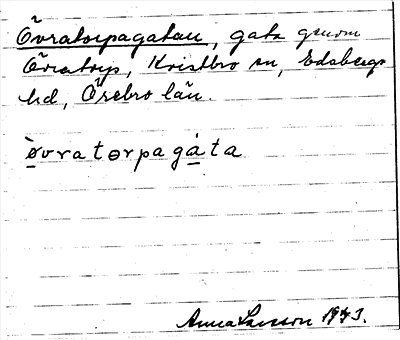 Övratorpagatan, gata genom
Övratorp, Kvistbro sn, Edsbergs
hd, Örebro län.
ø̀vratɵrpagáta
Anna Larsson 1943.